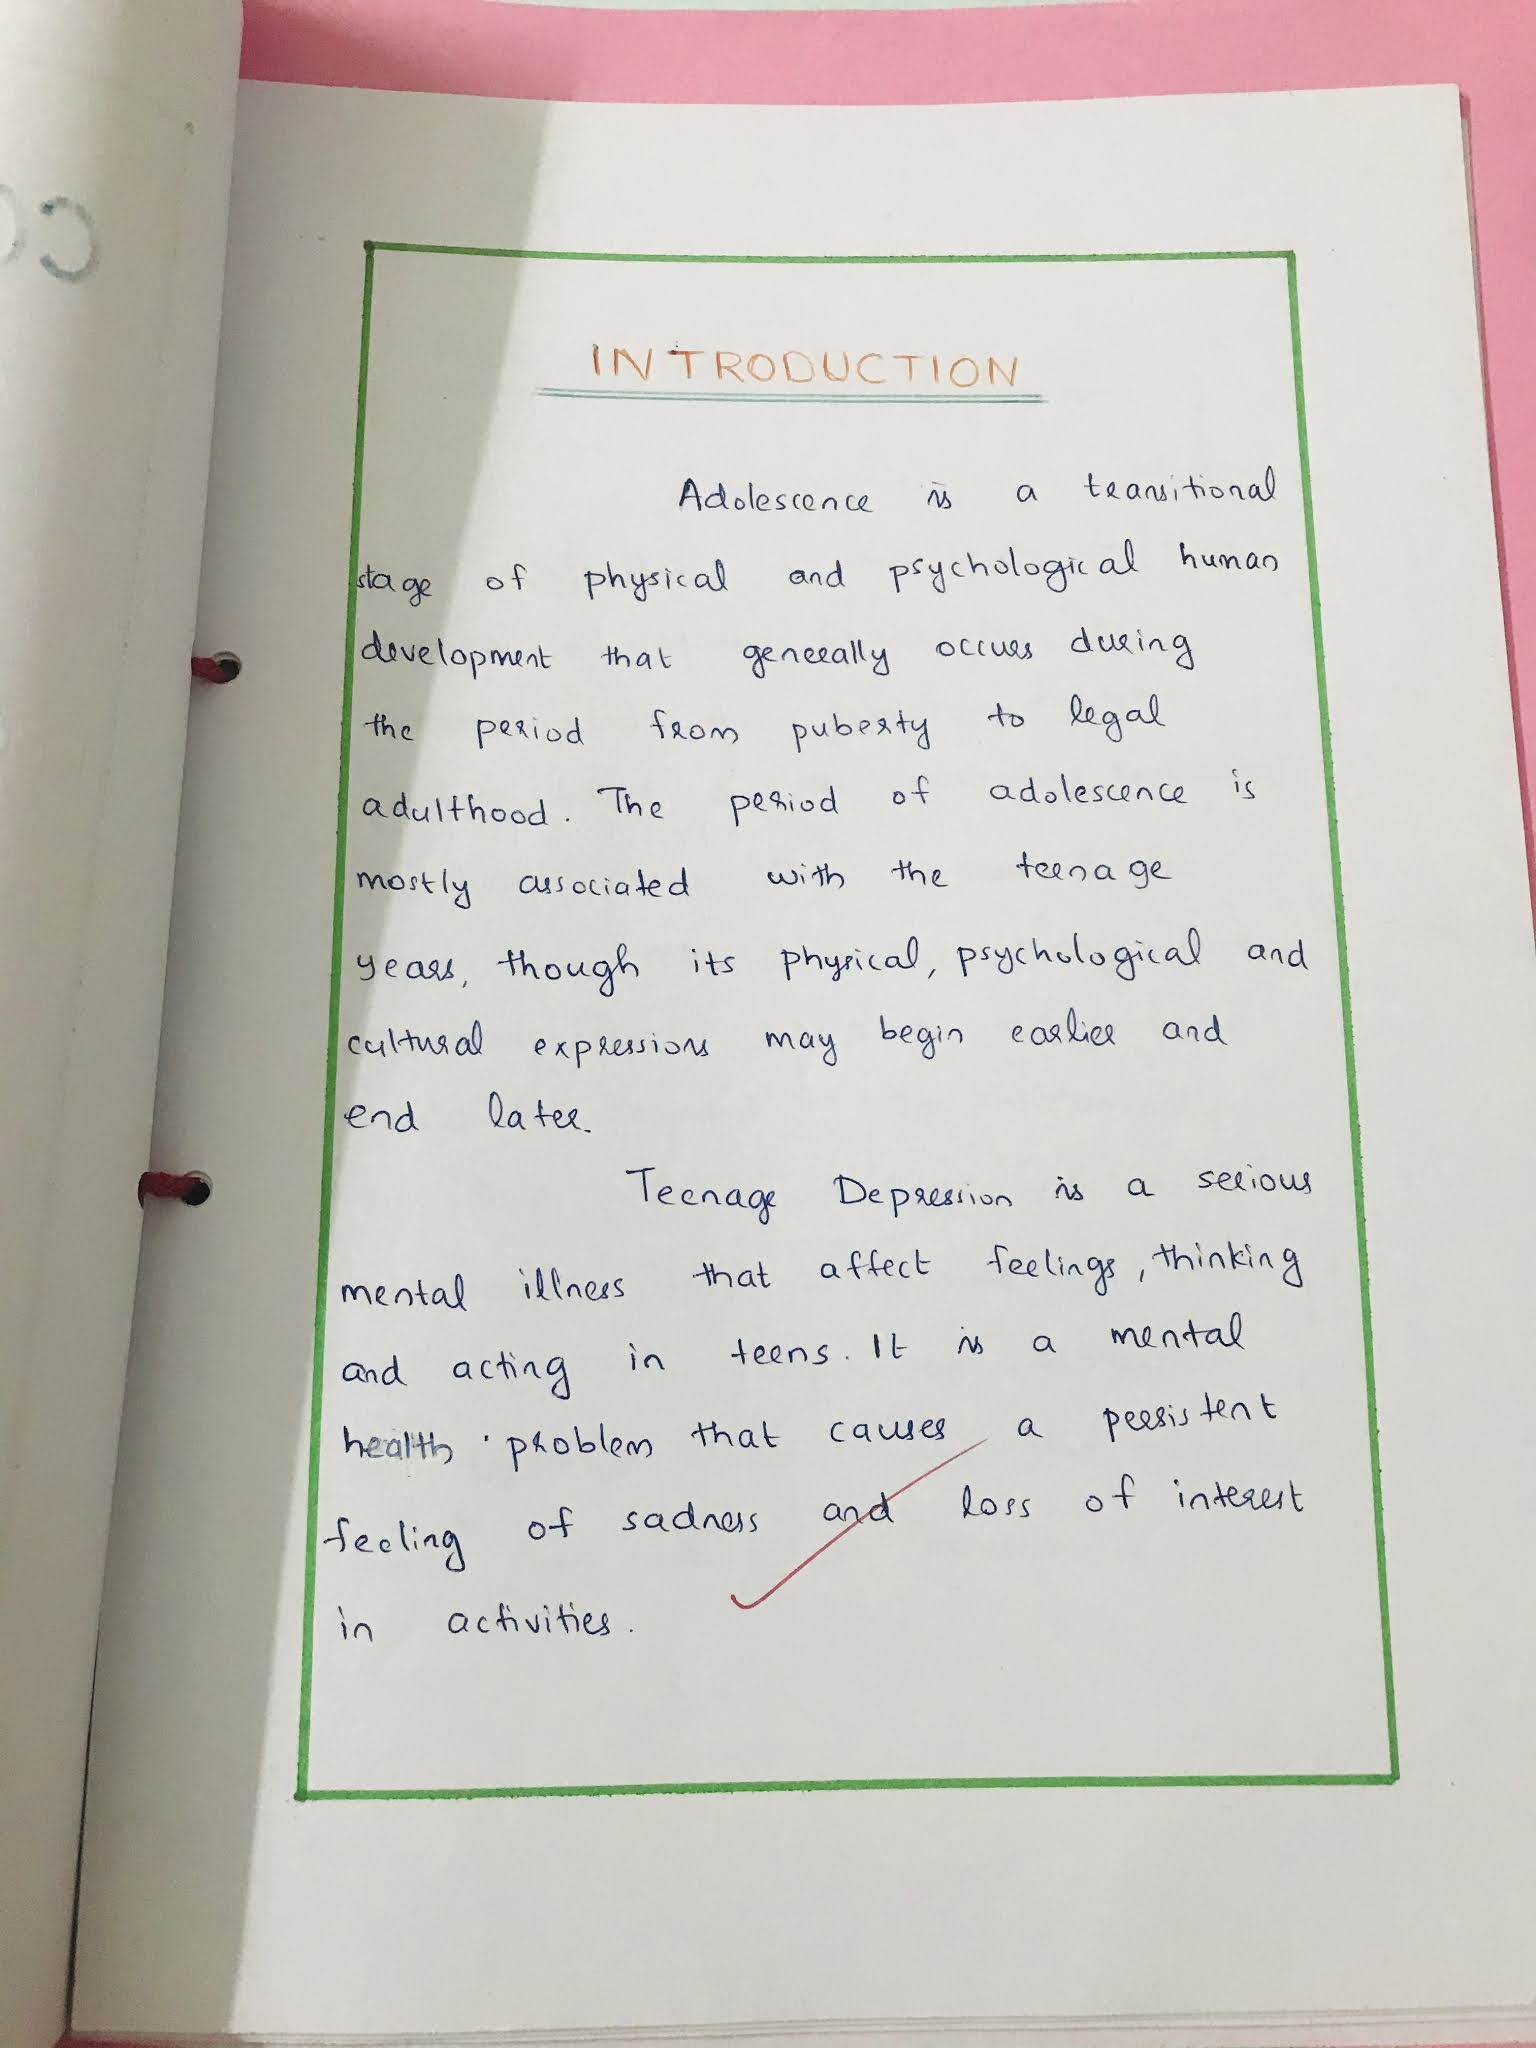 INTRODUCTION
Adolescence is a transitional
stage of physical and psychological human
development that generally occurs during
the period from puberty to legal
adulthood. The period of adolescence is
mostly associated with the teenage
years, though its physical, psychological and
cultural expressions may begin earlier and
end later.
Teenage Depression is a serious
mental illness that affect feelings, thinking
and acting in teens. It is a mental
health problem that causes a persistent
feeling of sadness and loss of interest
in activities.